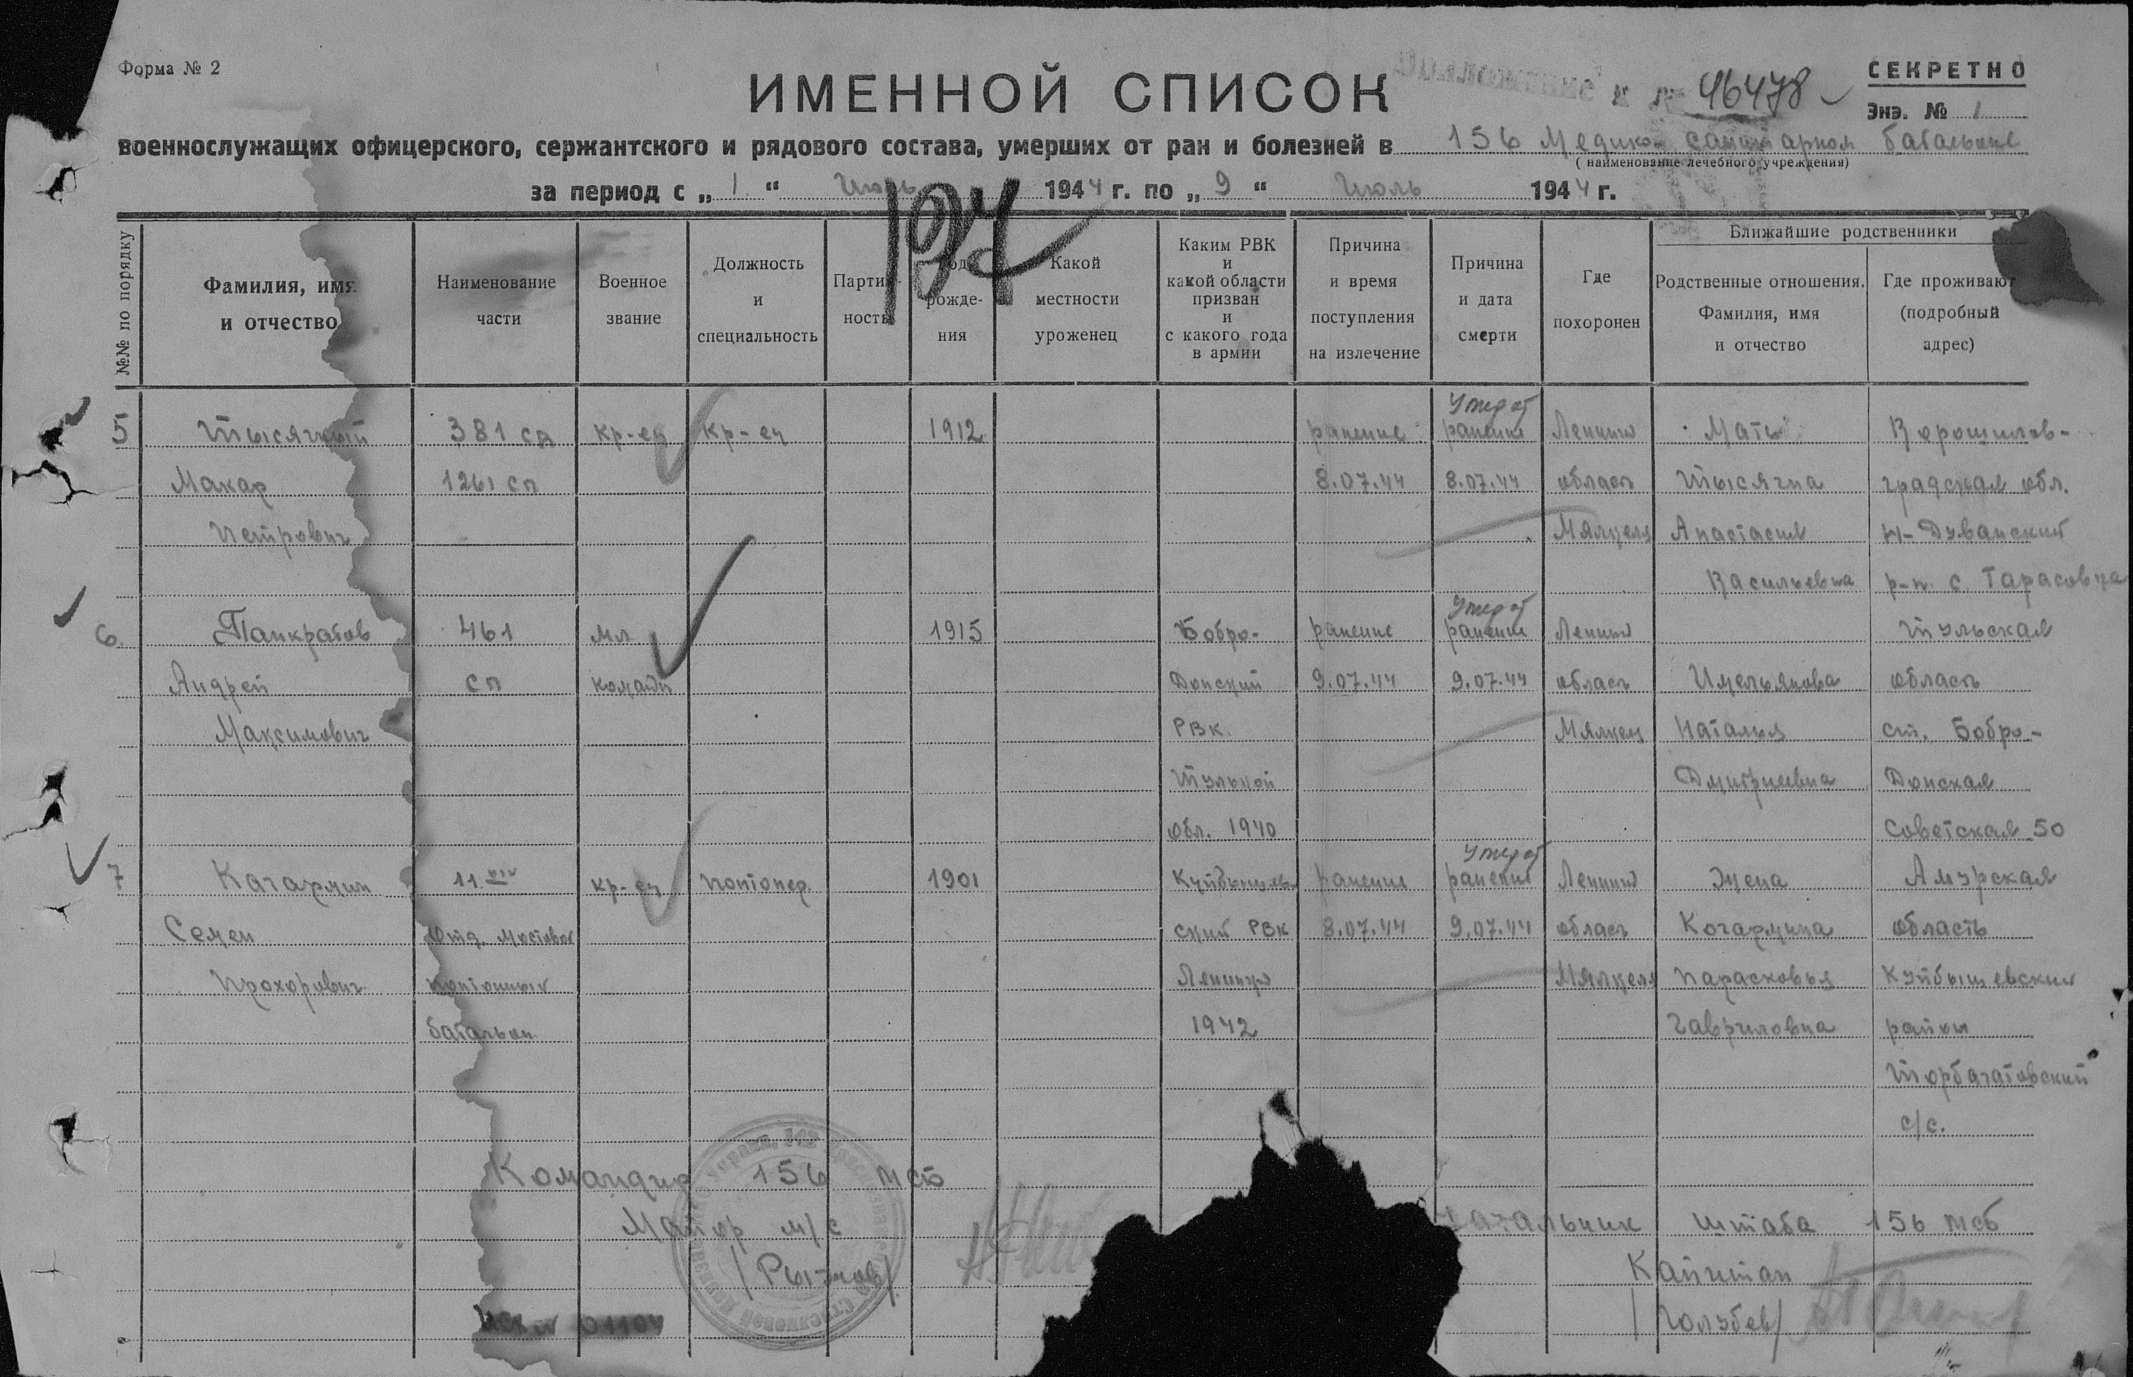 Форма № 2
СЕКРЕТНО
ИМЕННОЙ СПИСОК
46478
Экз. № 1
военнослужащих офицерского, сержантского и рядового состава, умерших от ран и болезней в 156 Медико санитарном батальоне
(наименование лечебного учреждения)
за период с „ 1 “ Июль 1944 г. по „ 9 “ Июль 1944 г.
194
№№ по порядку
Фамилия, имя и отчество
Наименование части
Военное звание
Должность и специальность
Партий-ность
Год рожде-ния
Какой местности уроженец
Каким РВК и какой области призван и с какого года в армии
Причина и время поступления на излечение
Причина и дата смерти
Где похоронен
Ближайшие родственники
Родственные отношения. Фамилия, имя и отчество
Где проживают (подробный адрес)
Умер от
5 Тысячный 381 сд кр-ец кр-ец 1912 ранение ранения Ленинг Мать Ворошилов-
Макар 1261 сп 8.07.44 8.07.44 област Тысячна градская обл.
Петрович Мялкеля Анастасия Н-Дуванский
Васильевна р-н. с. Тарасовка
Умер от
6. Панкратов 461 мл 1915 Бобро- ранение ранения Ленинг Тульская
Андрей сп команди Донский 9.07.44 9.07.44 област Имельянова область
Максимович РВК. Мялкел Наталья ст. Бобро-
Тульской Дмитриевна Донская
обл. 1940 Советская 50
Умер от
7 Качармин 11 кр-ец понтонер 1901 Куйбышев ранение ранения Ленинг Жена Амурская
Семен Отд. мостовой ский РВК 8.07.44 9.07.44 област Когармина область
Прохорович понтонный Ленингр Мялкеля Парасковья Куйбышевский
батальон 1942 Гавриловна район
Торбагатовский
с/с.
Командир 156 МСБ
Майор м/с Начальник штаба 156 МСБ
/Рыжков/ Капитан
01104 /Голубев/